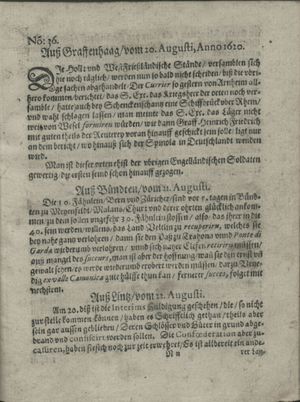 No: 36.
Auß Graffenhaag/vom 20. Augusti, Anno 1620.
DIe Holl: und WestFrießländische Stände/versamblen sich
hie noch täglich/ werden nun so bald nicht scheiden/ biß die vbri-
ge sachen abgehandelt. Der Currier so gestern von Arnheim all-
hero kommen/ berichtet/ das S. Exc. das Kriegsheer der orten noch
samble/ hatte auch bey Schenckenschans eine Schiffbrück vber Rhein/
und wals schlagen lassen/ man meinte das S. Exc. das Läger nicht
weit von Wesel formiren würden/ wo dann Graff Heinrich Friderich
mit guten theils der Reuterey voran hinauff geschickt sein solle/ ligt nur
an dem bericht/ wo hinauß sich der Spinola in Deutschland wenden
wird.
Man ist dieser orten erst der vbrigen Engelländischen Soldaten
gewertig/ die ersten seind schon hinauff gezogen.
Auß Bündten/vom 21. Augusti.
Die 10. Fähnlein/ Bern und Zürcher/ sind vor 5. tagen in Bünd-
ten zu Meyenfeldt/ Malans/ Chur und derer ohrten glücklich ankom-
men/ zu den sollen ungefehr 30. Fähnlein stossen/ also/ das ihrer in die
40. sein werden/ willens/ das Land Veltlin zu recuperirn, welches sie
bey nahe gantz verlohren/ dann sie den Paß zu Trahona vond Ponte di
Ganda wiederumb verlohren/ unnd sich nacher Clefen retirirn müssen/
auß mangel des succurs, man ist aber der hoffnung/ es werde der ver-
lohrne Paß/ bald wieder und wiederumb erobert werden müssen/ darzu Vene-
dig ex valle Camonica gute hülffe thun kan/ fernerer/ succes, folget mit
nechstem.
Auß Lintz/vom 22. Augusti.
Am 20. diß ist die Interims Huldigung geschehen/ die/ so nicht
zur stelle kommen können/ haben es Schrifftlich gethan/ theils aber
sein gar aussen geblieben/ Deren Schlösser und Güter in grund abge-
brand und confiscirt worden sollen. Die Confœderation aber zu-
cassiren, haben sie sich noch zur zeit erwehret/ Es ist allbereit ein ander-
N n